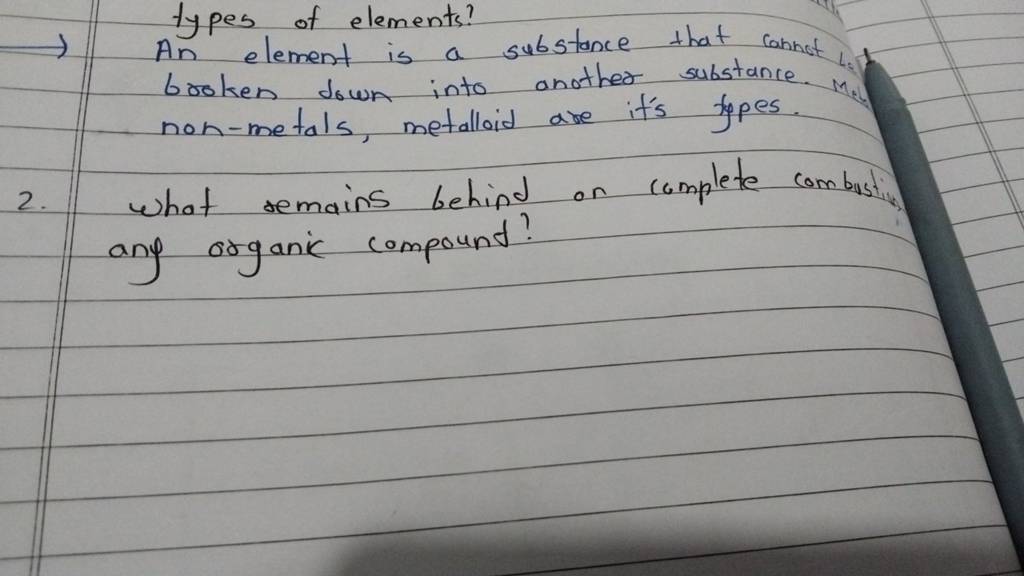 types of elements?
→ An element is a substance that cannot be
broken down into another substance.
non-metals, metalloid are it's types.
2. What remains behind on complete
any organic compound?